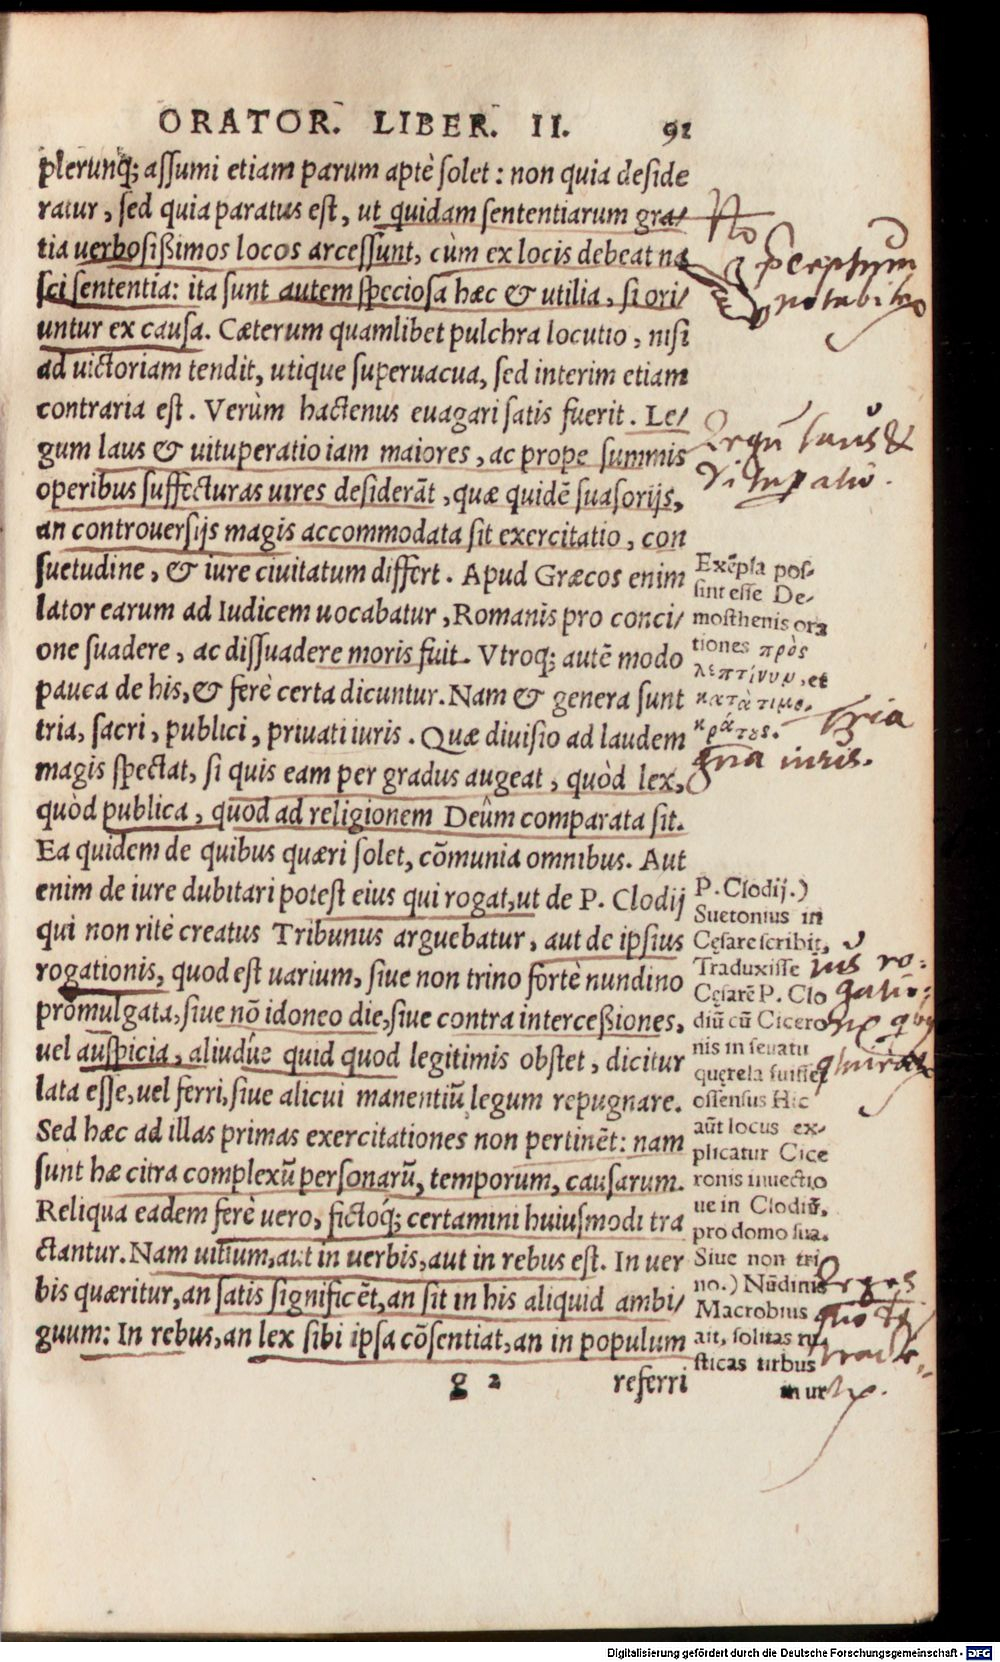 ORATOR. LIBER. II. 91
plerunq; assumi etiam parum aptè solet: non quia deside
ratur, sed quia paratus est, ut quidam sententiarum gra⸗
tia uerbosißimos locos arcessunt, cùm ex locis debeat na
sci sententia: ita sunt autem speciosa hæc & utilia, si ori⸗
untur ex causa. Cæterum quamlibet pulchra locutio, nisi
ad uictoriam tendit, utique superuacua, sed interim etiam
contraria est. Verùm hactenus euagari satis fuerit. Le⸗
gum laus & uituperatio iam maiores, ac prope summis
operibus suffecturas uires desiderāt, quæ quidē suasorijs,
an controuersijs magis accommodata sit exercitatio, con
suetudine, & iure ciuitatum differt. Apud Græcos enim
lator earum ad Iudicem uocabatur, Romanis pro conci⸗
one suadere, ac dissuadere moris fuit. Vtroq; autē modo
pauca de his, & ferè certa dicuntur. Nam & genera sunt
tria, sacri, publici, priuati iuris. Quæ diuisio ad laudem
magis spectat, si quis eam per gradus augeat, quòd lex,
quòd publica, quod ad religionem Deûm comparata sit.
Ea quidem de quibus quæri solet, cōmunia omnibus. Aut
enim de iure dubitari potest eius qui rogat, ut de P. Clodij
qui non ritè creatus Tribunus arguebatur, aut de ipsius
rogationis, quod est uarium, siue non trino fortè nundino
promulgata, siue nō idoneo die, siue contra interceßiones,
uel auspicia, aliudúe quid quod legitimis obstet, dicitur
lata esse, uel ferri, siue alicui manentiū legum repugnare.
Sed hæc ad illas primas exercitationes non pertinēt: nam
sunt hæ citra complexū personarū, temporum, causarum.
Reliqua eadem ferè uero, fictoq́; certamini huiusmodi tra
ctantur. Nam uitium, aut in uerbis, aut in rebus est. In uer
bis quæritur, an satis significēt, an sit in his aliquid ambi⸗
guum: In rebus, an lex sibi ipsa cōsentiat, an in populum
g 2 referri
No
pceptum
notabile
Legū laus &
vitupatio.
Exēpla pos⸗
sint esse De⸗
mosthenis ora
tiones πρὸς
λεπτίνην, et
κατὰ τιμο⸗
κράτους.
tria
gña iuris.
P. Clodij.)
Suetonius in
Cęsare scribit,
Traduxisse
Cęsarē P. Clo
diū cū Cicero
nis in senatu
quęrela fuisset
offensus Hic
aūt locus ex⸗
plicatur Cice
ronis inuectio
ue in Clodiū,
pro domo sua.
Siue non tri
no.) Nūdinis
Macrobius
ait, solitas ru
sticas urbus
in ur
ius ro⸗
gatio⸗
Leges
Digitalisierung gefördert durch die Deutsche Forschungsgemeinschaft - DFG